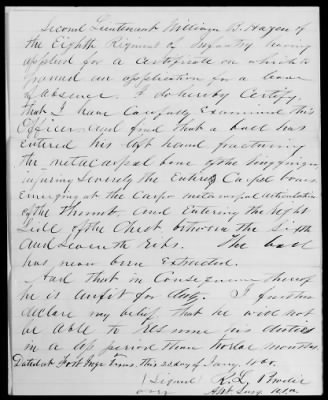 Second Lieutenant William B. Hazen of
the Eighth Regiment of Infantry having
applied for a Certificate on which to
ground an application for a leave
of absence. I do hereby Certify,
that I have Carefully Examined this
Officer and find that a ball has
entered his left hand fracturing
the metacarpal bone of the ring finger
injuring Severely the Entire Carpal bones
Emerging at the Carpo metacarpal articulation
of the Thumb, and Entering the right
Side of the Chest between the Sixth
and Seventh Ribs. The ball
has never been Extracted.
And that in Consequence thereof
he is unfit for duty. I further
declare my belief that he will not
be able to resume his duties
in a less period than twelve months.
Dated at Fort Texas, this 22 day of Jany. 1860.
(Signed)
Asst Surg. U.S.A.